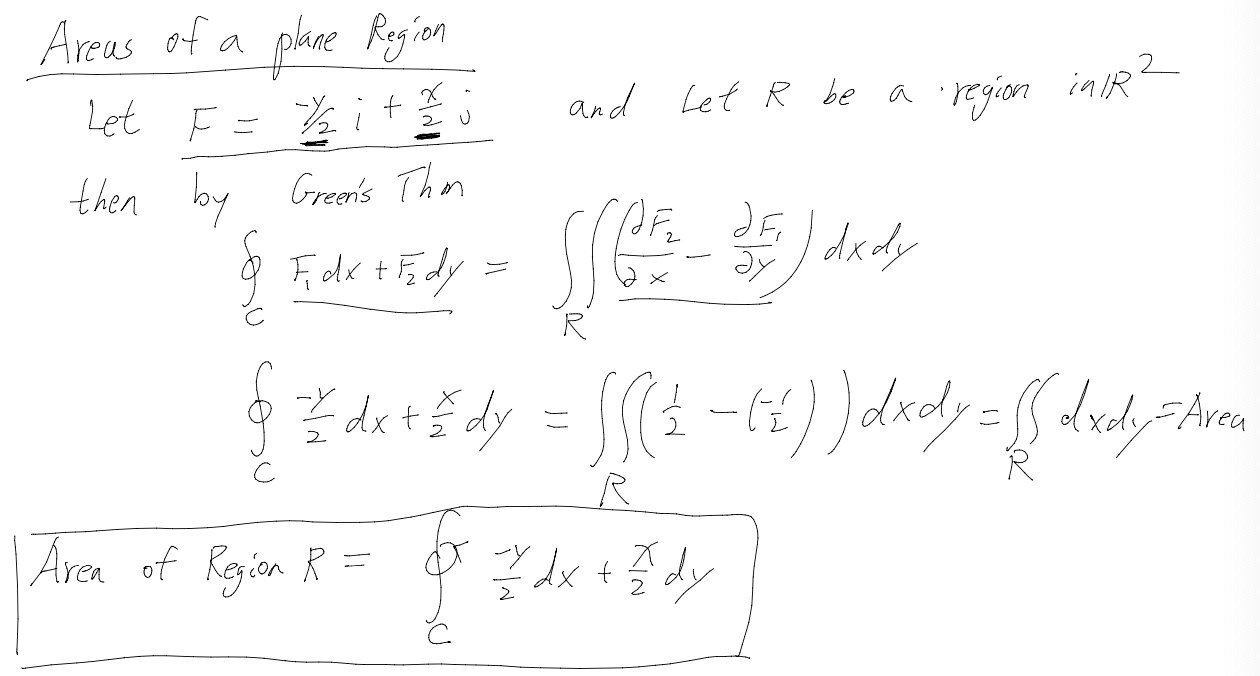 Areas of a plane Region
Let F = -y/2 i + x/2 j and Let R be a region in ℝ²
then by Green's Thm
∮_C F₁dx + F₂dy = ∬_R (∂F₂/∂x - ∂F₁/∂y) dxdy
∮_C -y/2 dx + x/2 dy = ∬_R (1/2 - (-1/2)) dxdy = ∬_R dxdy = Area
Area of Region R = ∮_C -y/2 dx + x/2 dy